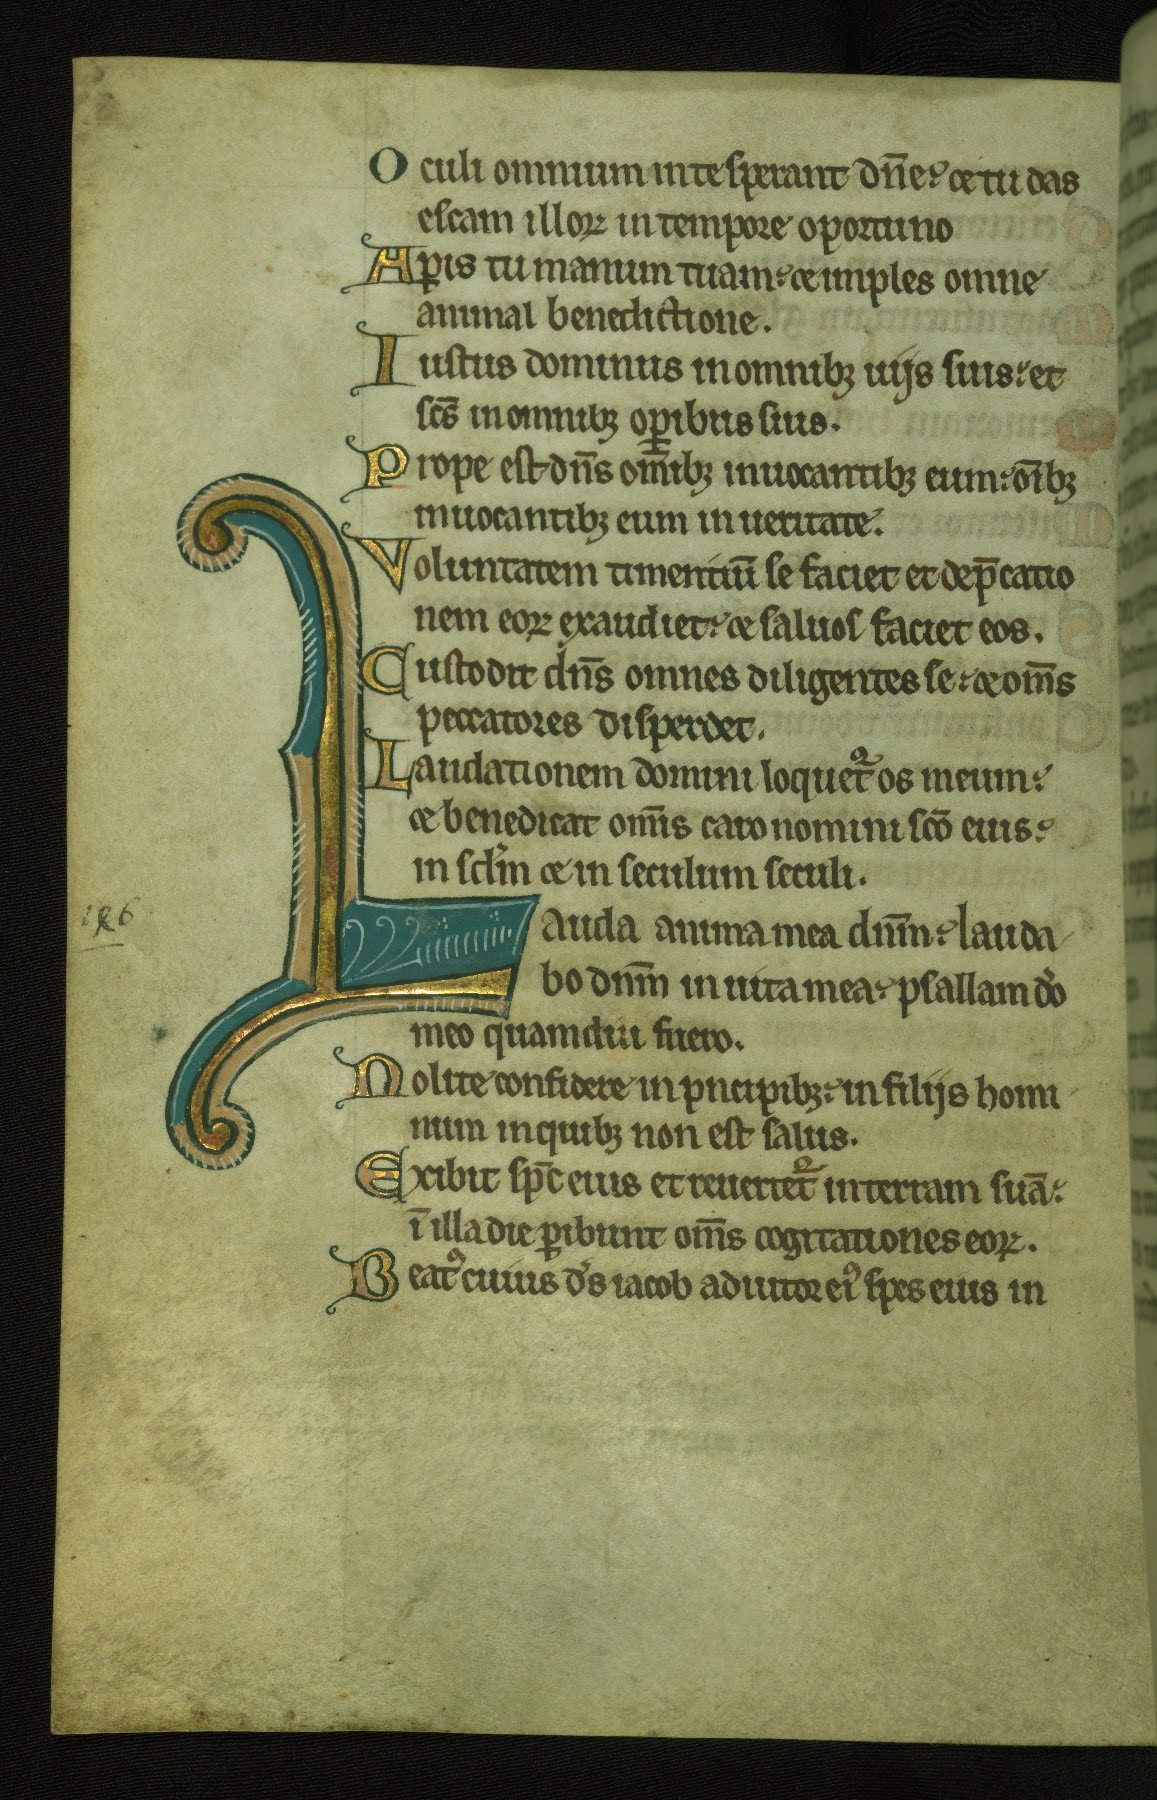 Oculi omnium in te sperant dn̄e: ⁊ tu das
escam illoꝝ in tempore oportuno
Apis tu manum tuam: ⁊ imples omne
animal benedictione.
Iustus dominus in omnibꝫ uijs suis: et
sc̄s in omnibꝫ oꝑibus suis.
Prope est dn̄s om̄ibꝫ inuocantibꝫ eum: oīb̄ꝫ
inuocantibꝫ eum in ueritate.
Voluntatem timentiū se faciet et dep̄catio
nem eoꝝ exaudiet: ⁊ saluos faciet eos.
Custodit dn̄s omnes diligentes se: ⁊ om̄s
peccatores disperdet.
Laudationem domini loquet᷑ os meum:
⁊ benedicat om̄is caro nomini sc̄o eius:
in sc̄lm ⁊ in seculum seculi.
Lauda anima mea dn̄m: lauda
bo dn̄m in uita mea: psallam do
meo quamdiu fuero.
Nolite confidere in pncipibꝫ: in filijs homi
num in quibꝫ non est salus.
Exibit sp̄c eius et reuertet᷑ in terram suā:
ī illa die ꝑibunt om̄s cogitationes eoꝝ.
Beatꝰ cuius ds iacob adiutor eiꝰ spes eius in